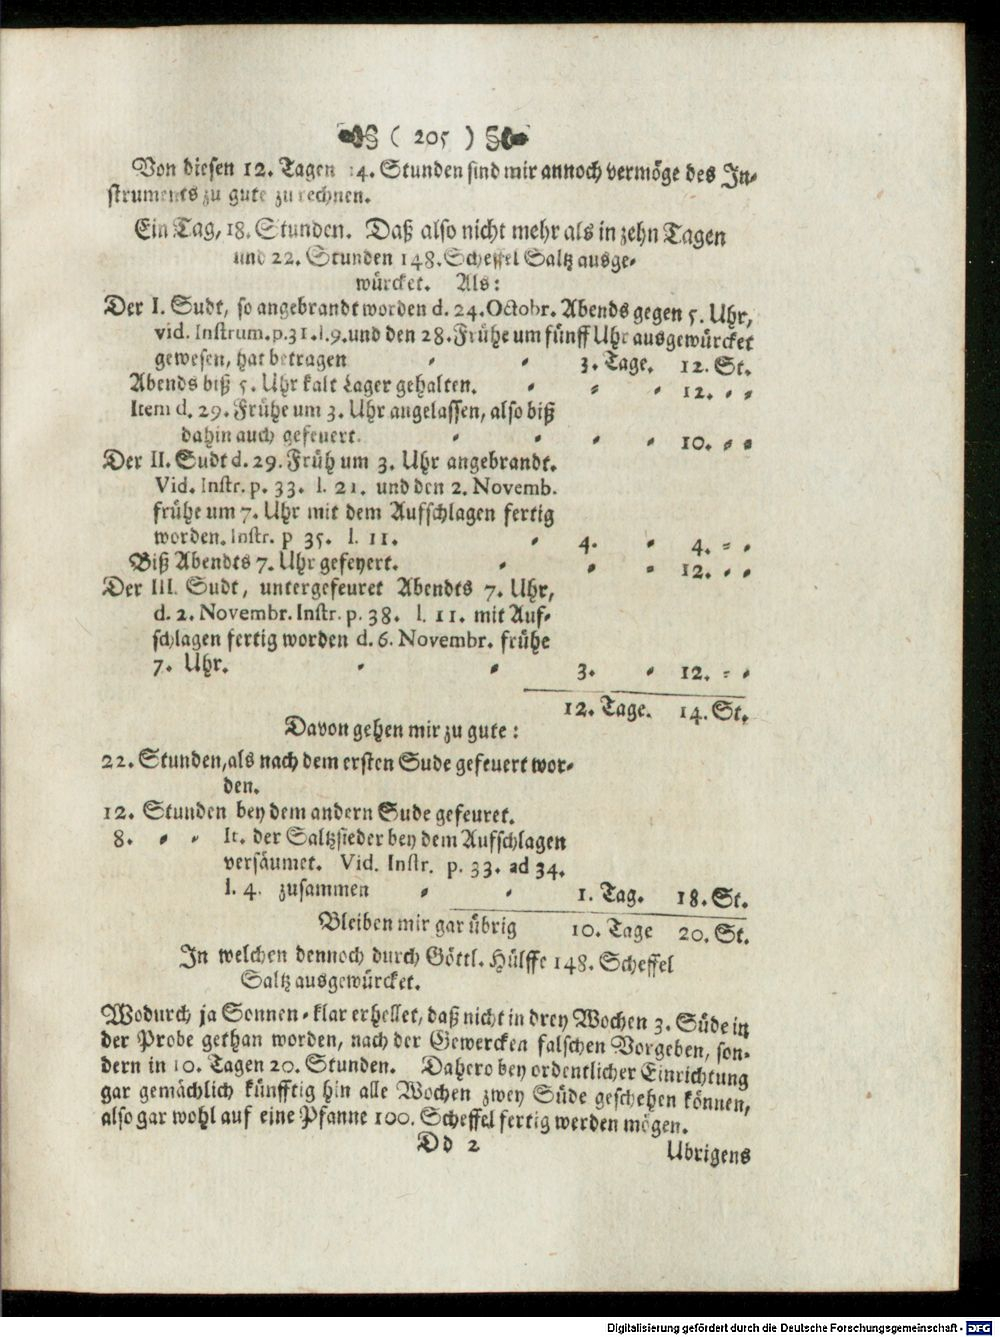 ( 205 )
Von diesen 12. Tagen 14. Stunden sind mir annoch vermöge des In-
struments zu gute zu rechnen.
Ein Tag, 18. Stunden. Daß also nicht mehr als in zehn Tagen
und 22. Stunden 148. Scheffel Saltz ausge-
würcket. Als:
Der I. Sudt, so angebrandt worden d. 24. Octobr. Abends gegen 5. Uhr,
vid. Instrum. p. 31. l. 9. und den 28. Frühe um fünff Uhr ausgewürcket
gewesen, hat betragen = = 3. Tage. 12. St.
Abends biß 5. Uhr kalt Lager gehalten. = = = 12. = =
Item d. 29. Frühe um 3. Uhr angelassen, also biß
dahin auch gefeuert. = = = = 10. = =
Der II. Sudt d. 29. Früh um 3. Uhr angebrandt.
Vid. Instr. p. 33. l. 21. und den 2. Novemb.
frühe um 7. Uhr mit dem Aufschlagen fertig
worden. Instr. p 35. l. 11. = 4. = 4. = =
Biß Abendts 7. Uhr gefeyert. = = = 12. = =
Der III. Sudt, untergefeuret Abendts 7. Uhr,
d. 2. Novembr. Instr. p. 38. l. 11. mit Auf-
schlagen fertig worden d. 6. Novembr. frühe
7. Uhr. = = 3. = 12. = =
12. Tage. 14. St.
Davon gehen mir zu gute:
22. Stunden, als nach dem ersten Sude gefeuert wor-
den.
12. Stunden bey dem andern Sude gefeuret.
8. = = It. der Saltzsieder bey dem Aufschlagen
versäumet. Vid. Instr. p. 33. ad 34.
l. 4. zusammen = = 1. Tag. 18. St.
Bleiben mir gar übrig 10. Tage 20. St.
In welchen dennoch durch Göttl. Hülffe 148. Scheffel
Saltz ausgewürcket.
Wodurch ja Sonnen-klar erhellet, daß nicht in drey Wochen 3. Süde in
der Probe gethan worden, nach der Gewercken falschen Vorgeben, son-
dern in 10. Tagen 20. Stunden. Dahero bey ordentlicher Einrichtung
gar gemächlich künfftig hin alle Wochen zwey Süde geschehen können,
also gar wohl auf eine Pfanne 100. Scheffel fertig werden mögen.
Dd 2
Ubrigens
Digitalisierung gefördert durch die Deutsche Forschungsgemeinschaft - DFG